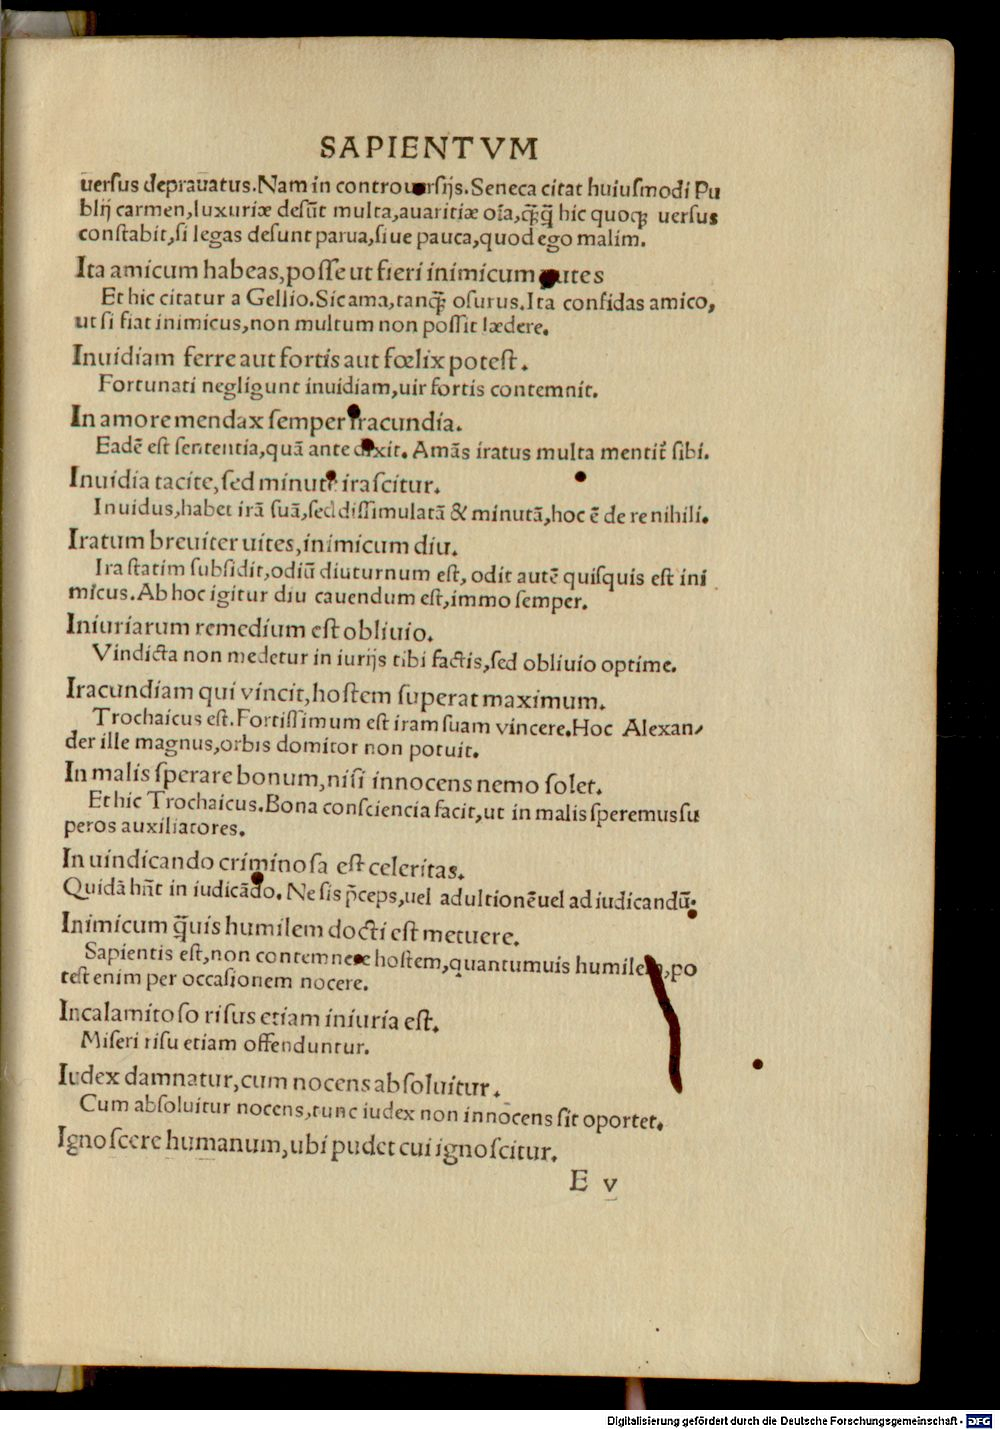 SAPIENTVM
uersus deprauatus. Nam in controuersijs. Seneca citat huiusmodi Pu
blij carmen, luxuriæ desūt multa, auaritiæ oīa, hic quoqꝫ uersus
constabit, si legas desunt parua, siue pauca, quod ego malim.
Ita amicum habeas, posse ut fieri inimicum putes
Et hic citatur a Gellio. Sic ama, tanqꝫ̄ osurus. Ita confidas amico,
ut si fiat inimicus, non multum non possit lædere.
Inuidiam ferre aut fortis aut fœlix potest.
Fortunati negligunt inuidiam, uir fortis contemnit.
In amore mendax semper iracundia.
Eadē est sententia, quā ante dixit. Amās iratus multa mentit᷑ sibi.
Inuidia tacite, sed minute irascitur.
Inuidus, habet irā suā, sed dissimulatā & minutā, hoc ē de re nihili.
Iratum breuiter uites, inimicum diu.
Ira statim subsidit, odiū diuturnum est, odit autē quisquis est ini
micus. Ab hoc igitur diu cauendum est, immo semper.
Iniuriarum remedium est obliuio.
Vindicta non medetur in iurijs tibi factis, sed obliuio optime.
Iracundiam qui vincit, hostem superat maximum.
Trochaicus est. Fortissimum est iram suam vincere. Hoc Alexan⸗
der ille magnus, orbis domitor non potuit.
In malis sperare bonum, nisi innocens nemo solet.
Et hic Trochaicus. Bona consciencia facit, ut in malis speremus su
peros auxiliatores.
In uindicando criminosa est celeritas.
Quidā hn̄t in iudicādo. Ne sis p̄ceps, uel ad ultionē uel ad iudicandū.
Inimicum q̄uis humilem docti est metuere.
Sapientis est, non contemnere hostem, quantumuis humilem, po
test enim per occasionem nocere.
In calamitoso risus etiam iniuria est.
Miseri risu etiam offenduntur.
Iudex damnatur, cum nocens absoluitur.
Cum absoluitur nocens, tunc iudex non innocens sit oportet.
Ignoscere humanum, ubi pudet cui ignoscitur.
E v
Digitalisierung gefördert durch die Deutsche Forschungsgemeinschaft - DFG